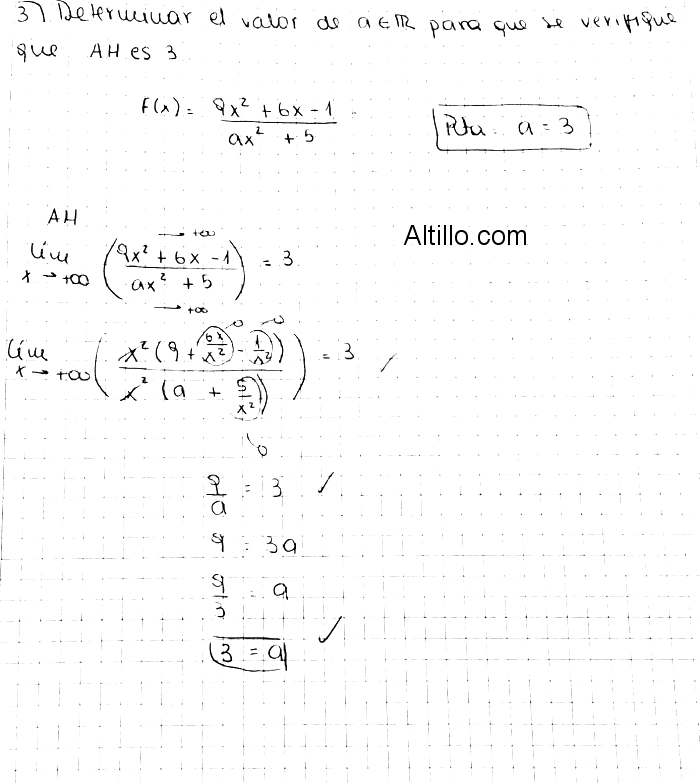 3) Determinar el valor de a ∈ ℝ para que se verifique
que AH es 3
F(x) = (9x² + 6x - 1) / (ax² + 5)
Rta. a = 3
AH
Altillo.com
→ +∞
lím x → +∞ ((9x² + 6x - 1) / (ax² + 5)) = 3
→ +∞
→0 →0
lím x → +∞ (x² (9 + 6x/x² - 1/x²)) / (x² (a + 5/x²)) = 3
→0
9/a = 3 ✓
9 = 3a
9/3 = a
3 = a ✓